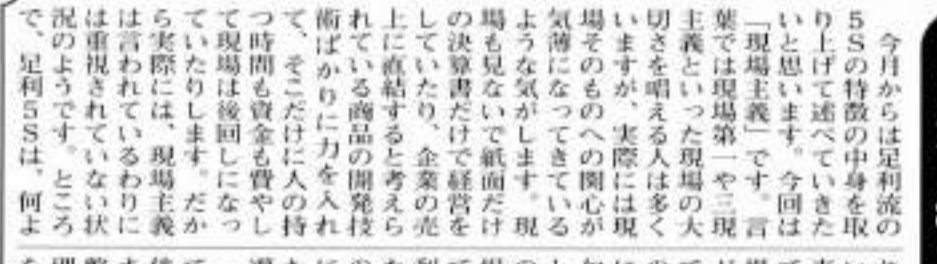 今月からは足利流の
５Ｓの特徴の中身を取
り上げて述べていきた
いと思います。今回は
「現場主義」です。言
葉では現場第一や三現
主義といった現場の大
切さを唱える人は多く
いますが、実際には現
場そのものへの関心が
気薄になってきている
ような気がします。現
場も見ないで紙面だけ
の決算書だけで経営を
していたり、企業の売
上に直結すると考えら
れている商品の開発技
術ばかりに力を入れ
て、そこだけに人の持
つ時間も資金も費やし
て現場は後回しになっ
ていたりします。だか
ら実際には、現場主義
は言われているわりに
は重視されていない状
況のようです。ところ
で、足利５Ｓは、何よ